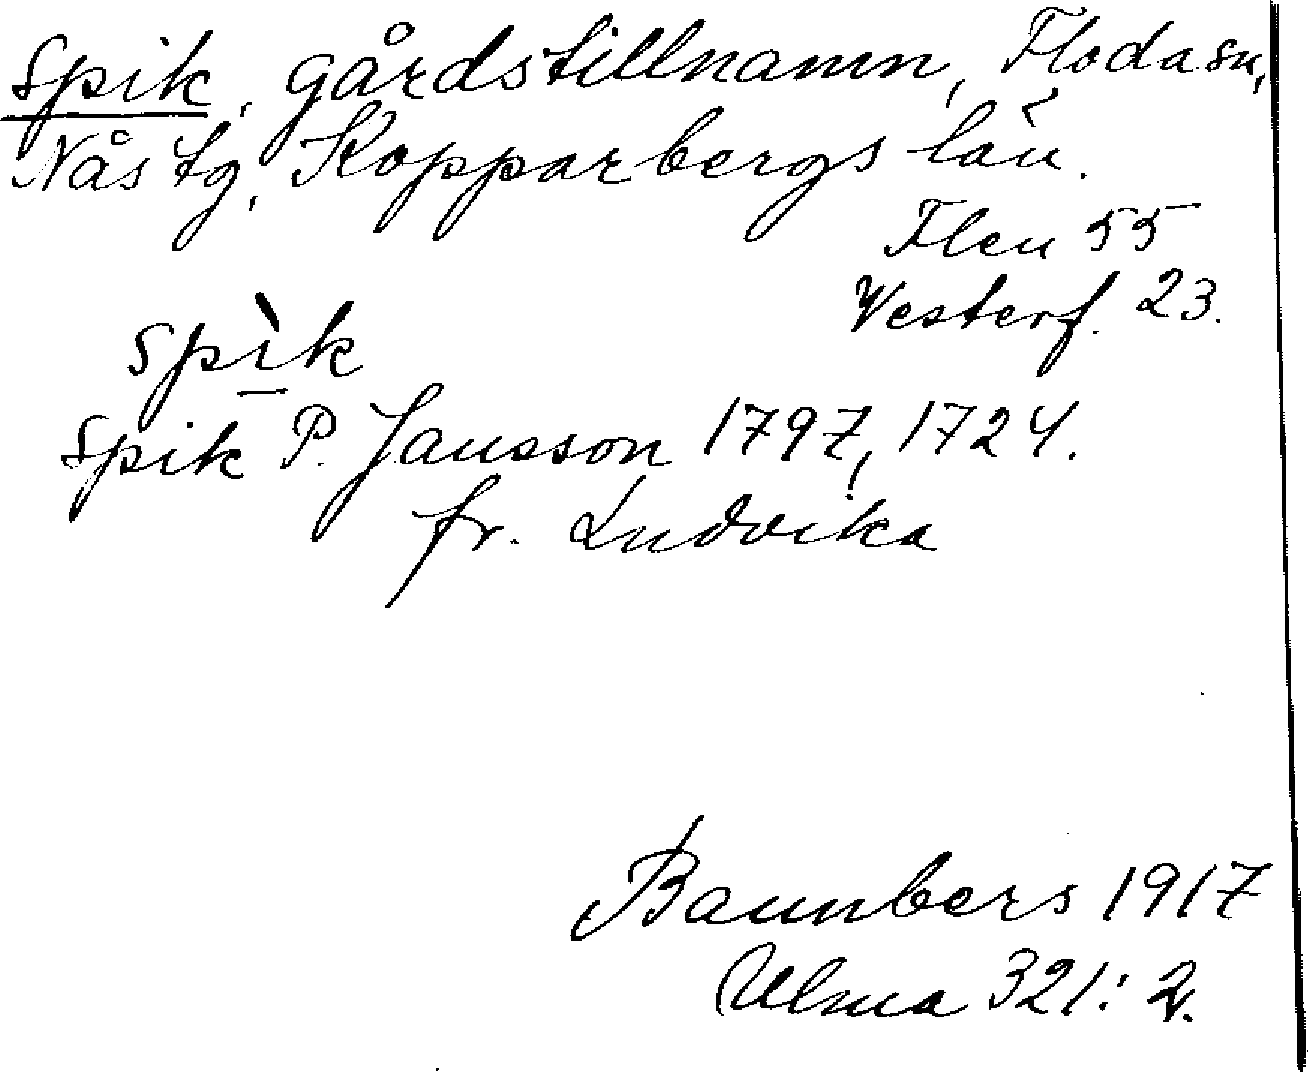 Spik, gårdstillnamn, Floda sn,
Nås tg, Kopparbergs län.
Flen 55
Westerf. 23.
spìk
Spik P. Jansson 1797, 1724.
fr. Ludvika
Bannbers 1917
Ulma 321:2.